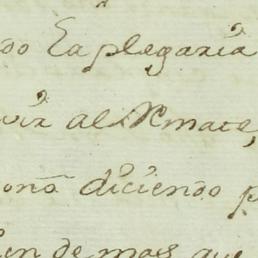 do la plegaria
vir al Rmate,
ona diciendo p
en de mas que